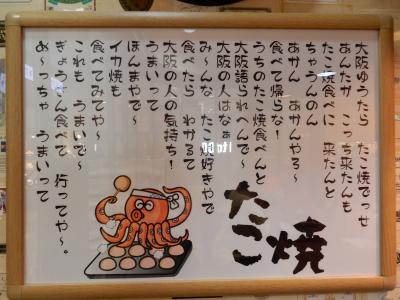 大阪ゆうたら たこ焼でっせ
あんたが こっち来たんも
たこ焼食べに 来たんと
ちゃうんのん
あかん あかんやろ~
食べて帰らな!
うちのたこ焼食べんと
大阪語られへんで~
大阪の人はなぁ
み~んな たこ焼好きやで
食べたら わかるて
大阪の人の気持ち!
うまいって
ほんまやで~
イカ焼も
食べてみてや~
これも うまいで~
ぎょうさん食べて 行ってや~。
め~っちゃ うまいって
たこ焼